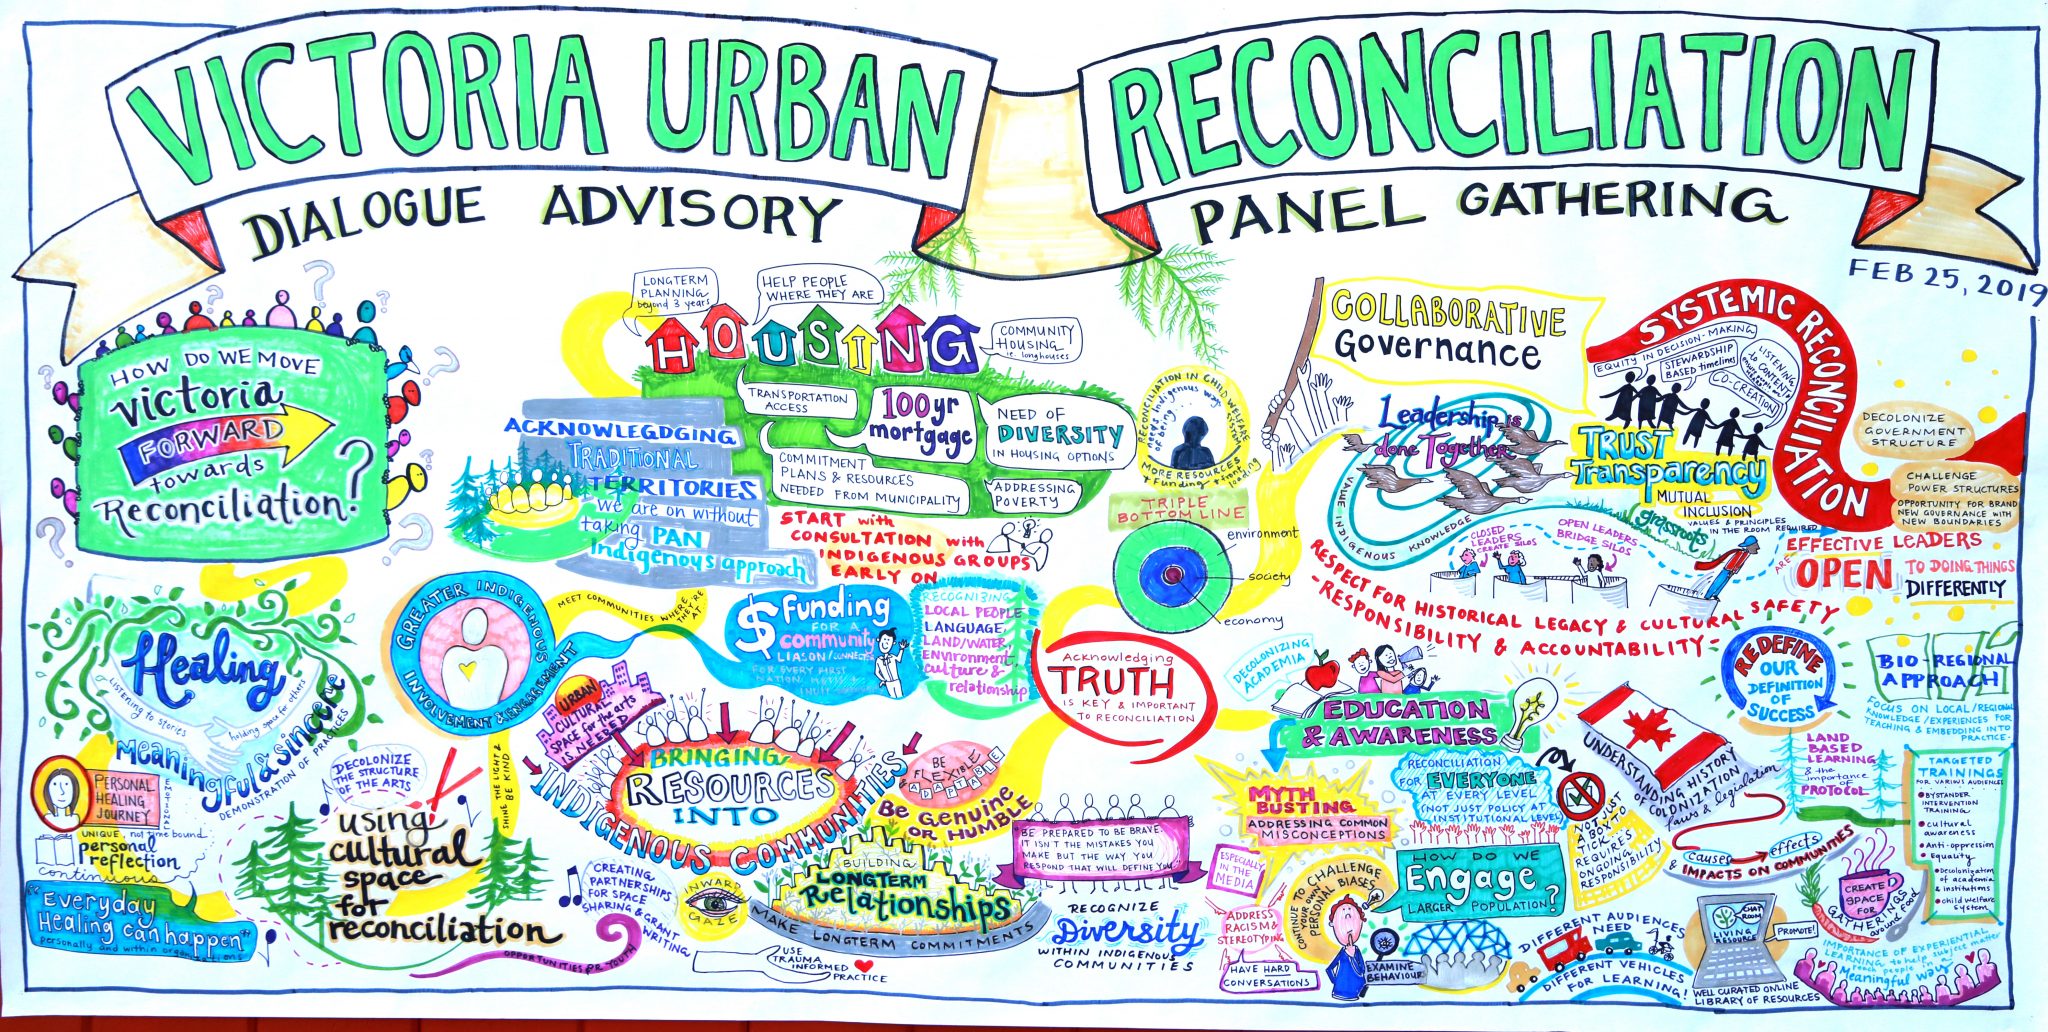 VICTORIA URBAN
RECONCILIATION
DIALOGUE ADVISORY
PANEL GATHERING
FEB 25, 2019
HOW DO WE MOVE
Victoria
FORWARD
towards
Reconciliation?
LONGTERM
PLANNING
beyond 3 years
HELP PEOPLE
WHERE THEY ARE
HOUSING
COMMUNITY
HOUSING
ie. longhouses
TRANSPORTATION
ACCESS
100yr
mortgage
NEED OF
DIVERSITY
IN HOUSING OPTIONS
COMMITMENT
PLANS & RESOURCES
NEEDED FROM MUNICIPALITY
ADDRESSING
POVERTY
ACKNOWLEGDGING
TRADITIONAL
TERRITORIES
we are on without
taking PAN
Indigenous approach
START with
CONSULTATION with
INDIGENOUS GROUPS
EARLY ON
RECONCILIATION IN CHILD WELFARE SYSTEM
needs Indigenous way
of being...
MORE RESOURCES
+ Funding
TRIPLE
BOTTOM LINE
environment
society
economy
COLLABORATIVE
Governance
Leadership is
done Together
VALUE INDIGENOUS KNOWLEDGE
SYSTEMIC RECONCILIATION
EQUITY IN DECISION-MAKING
STEWARDSHIP
BASED timelines
LISTENING
to
CONTENT
CO-CREATION
TRUST
Transparency
MUTUAL
INCLUSION
VALUES & PRINCIPLES
IN THE ROOM REQUIRED
grassroots
CLOSED
LEADERS
CREATE SILOS
OPEN LEADERS
BRIDGE SILOS
DECOLONIZE
GOVERNMENT
STRUCTURE
CHALLENGE
POWER STRUCTURES
OPPORTUNITY FOR BRAND
NEW GOVERNANCE with
NEW BOUNDARIES
EFFECTIVE LEADERS
ARE OPEN TO DOING THINGS
DIFFERENTLY
RESPECT FOR HISTORICAL LEGACY & CULTURAL SAFETY
-RESPONSIBILITY & ACCOUNTABILITY-
Healing
LISTENING to STORIES
holding space for others
Meaningful & sincere
DEMONSTRATION OF PRACTICES
PERSONAL
HEALING
JOURNEY
EMOTIONAL
UNIQUE, not time bound
personal
reflection
continuous
"Everyday
Healing can happen"
personally and within organizations
GREATER INDIGENOUS
INVOLVEMENT & ENGAGEMENT
MEET COMMUNITIES WHERE THEY'RE AT
$ Funding
FOR A
community
LIASON/CONNECTS
FOR EVERY FIRST
NATION, METI
INUIT
RECOGNIZING
LOCAL PEOPLE
LANGUAGE,
LAND/WATER,
ENVIRONMENT,
culture &
relationship
Acknowledging
TRUTH
IS KEY & IMPORTANT
TO RECONCILIATION
URBAN
CULTURAL
SPACE for the arts
IS NEEDED
SHINE THE LIGHT &
BE KIND
DECOLONIZE
THE STRUCTURE
OF THE ARTS
using
cultural
space
for
reconciliation
BRINGING
RESOURCES
INTO
INDIGENOUS COMMUNITIES
BE
FLEXIBLE
& ADAPTABLE
Be Genuine
OR HUMBLE
CREATING
PARTNERSHIPS
FOR SPACE
SHARING & GRANT
WRITING
OPPORTUNITIES FOR YOUTH
INWARD
GAZE
BUILDING
LONGTERM
Relationships
MAKE LONGTERM COMMITMENTS
USE
TRAUMA
INFORMED
PRACTICE
BE PREPARED TO BE BRAVE.
IT ISN'T THE MISTAKES YOU
MAKE BUT THE WAY YOU
RESPOND THAT WILL DEFINE YOU
RECOGNIZE
Diversity
WITHIN INDIGENOUS
COMMUNITIES
DECOLONIZING
ACADEMIA
EDUCATION
& AWARENESS
MYTH
BUSTING
ADDRESSING COMMON
MISCONCEPTIONS
ESPECIALLY
IN THE
MEDIA
ADDRESS
RACISM &
STEREOTYPING
HAVE HARD
CONVERSATIONS
CONTINUE TO CHALLENGE
YOUR OWN
PERSONAL BIASES
EXAMINE
BEHAVIOUR
RECONCILIATION
FOR EVERYONE
AT EVERY LEVEL
(NOT JUST POLICY AT
INSTITUTIONAL LEVEL)
HOW DO WE
Engage
LARGER POPULATION?
NOT JUST
A BOX
TICK
REQUIRES
ONGOING
RESPONSIBILITY
UNDERSTANDING HISTORY
OF COLONIZATION
Laws & legislation
causes
effects
& IMPACTS ON COMMUNITIES
REDEFINE
OUR
DEFINITION
OF
SUCCESS
BIO-REGIONAL
APPROACH
FOCUS ON LOCAL/REGIONAL
KNOWLEDGE/EXPERIENCES FOR
TEACHING & EMBEDDING INTO
PRACTICE-
LAND
BASED
LEARNING
& the
importance of
PROTOCOL
TARGETED
TRAININGS
FOR VARIOUS AUDIENCES
• BYSTANDER
INTERVENTION
TRAINING
• cultural
awareness
• Anti-oppression
• Equality
• Decolonization
of academia
& institutions
• child welfare
system
CREATED
SPACE
FOR
GATHERING
around food
DIFFERENT AUDIENCES
NEED
DIFFERENT VEHICLES
FOR LEARNING!
CHAT
ROOM
LIVING
RESOURCE
PROMOTE!
WELL CURATED ONLINE
LIBRARY OF RESOURCES
IMPORTANCE OF EXPERIENTIAL
LEARNING to help subject matter
reach people in a
Meaningful way